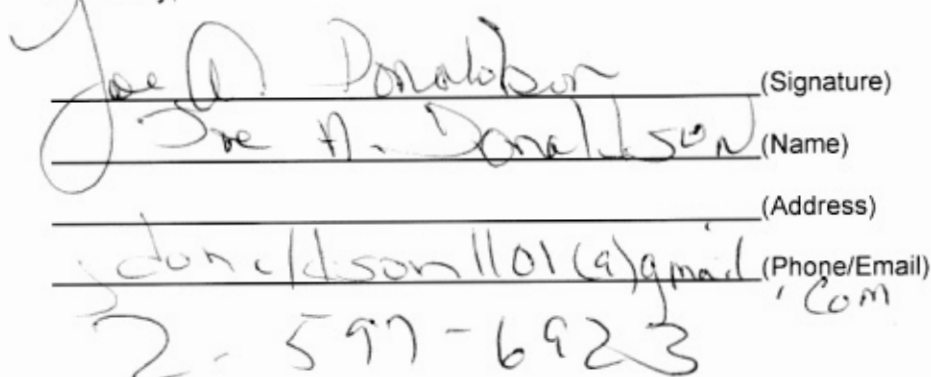 Joe A. Donaldson (Signature)
Joe A. Donaldson (Name)
(Address)
jdonaldson1101(a)gmail (Phone/Email)
.com
2-597-6923